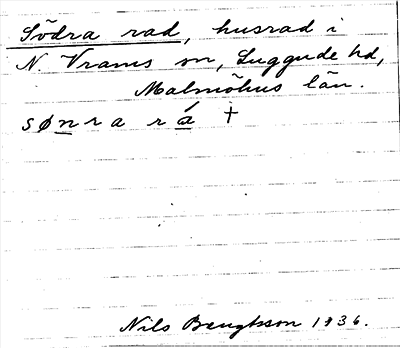 Södra rad, husrad i
N. Vrams sn, Luggude hd,
Malmöhus län.
sønra rá †
Nils Bengtsson 1936.